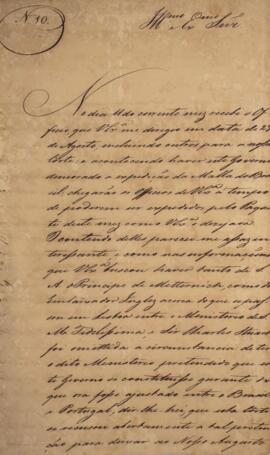 N 10.
Illmo e Exmo Snr
No dia 11 do corrente mez recebi o Of-
ficio que VSra me dirigio em data de 23
de Agosto, incluindo outros para a nossa
Corte, e acontecendo haver este Governo
demorado a expedição da Malla do Bra-
sil chegarão os Officios de VSra a tempo
de poderem ser expedidos pelo Paque-
te deste mez como VSra desejava
O contendo delles pareceu-me assaz in-
teressante e como nas informaçoens
que VSra buscou haver tanto de S.
A. o Principe de Metternich, como do
Embaixador Inglez acerca do que se pas-
sou em Lisboa entre o Ministerio de S.
M. Fidelissima e Sir Charles Stuart
foi omittida a circunstancia de ter
o dito Ministerio pretendido que es-
te Governo se constituisse garante do
que se fosse ajustado entre o Brasil
e Portugal, dir-lhe-hei, que esta Corte
se recusou abertamente a tal preten-
ção para deixar ao Nosso Augusto